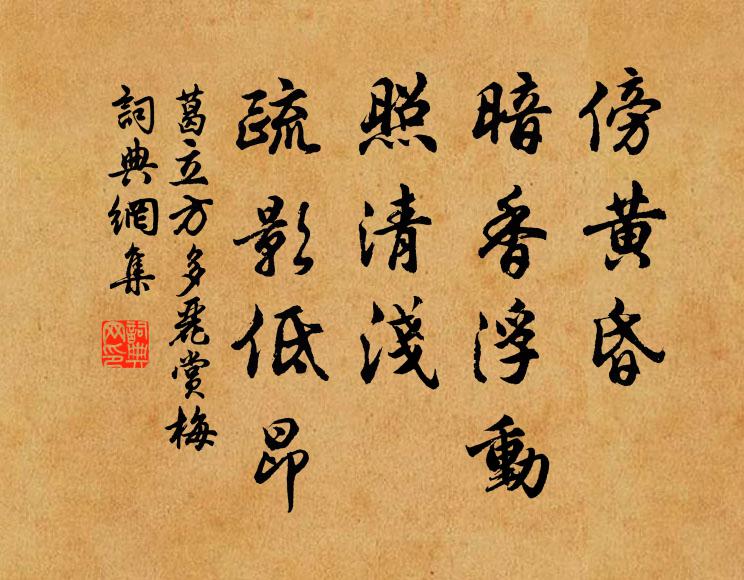 傍黃昏
暗香浮動
照清淺
疏影低昂
葛立方多麗賞梅
詞典網集
詞典網印